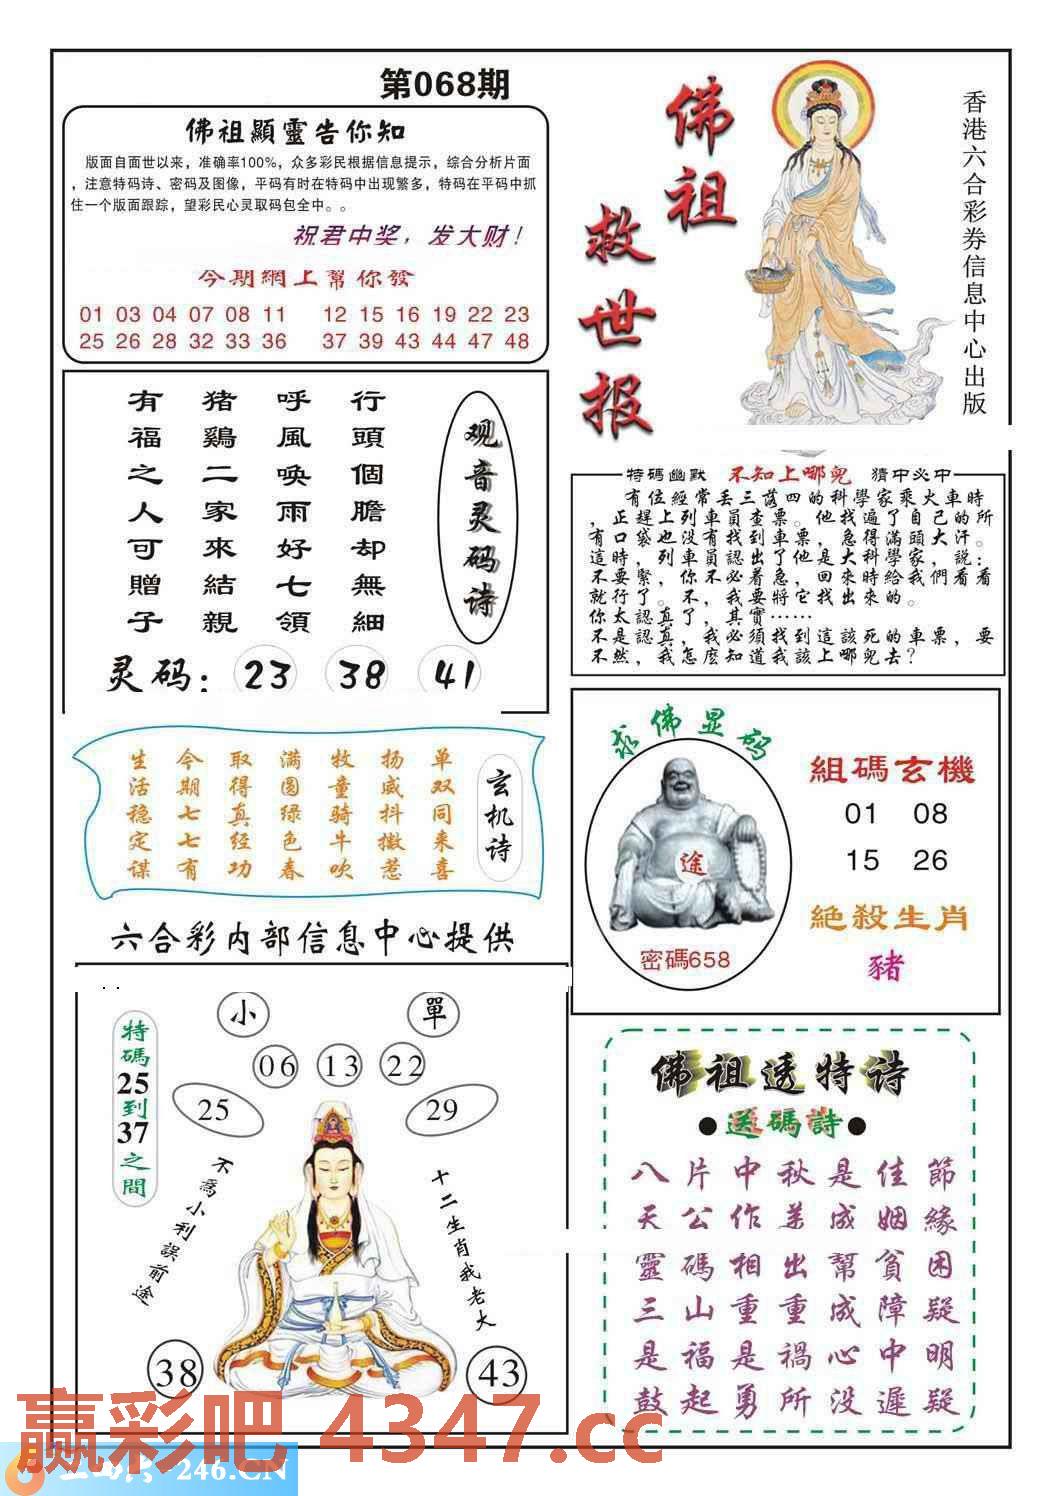 第068期
佛祖顯靈告你知
版面自面世以来，准确率100%，众多彩民根据信息提示，综合分析片面
，注意特码诗、密码及图像，平码有时在特码中出现繁多，特码在平码中抓
住一个版面跟踪，望彩民心灵取码包全中。。
祝君中奖，发大财！
今期網上幫你發
01 03 04 07 08 11 12 15 16 19 22 23
25 26 28 32 33 36 37 39 43 44 47 48
佛祖
救世报
香港六合彩券信息中心出版
观音灵码诗
行頭個膽却無細
呼風喚雨好七領
猪鷄二家來結親
有福之人可贈子
灵码：23 38 41
特碼幽默 不知上哪兒 猜中必中
有位經常丢三落四的科學家乘火車時
，正趕上列車員查票。他找遍了自己的所
有口袋也没有找到車票，急得滿頭大汗。
這時，列車員認出了他是大科學家，説：
不要緊，你不必着急，回來時給我們看看
就行了。不，我要將它找出來的。
你太認真了，其實……
不是認真，我必須找到這該死的車票，要
不然，我怎麽知道我該上哪兒去？
玄机诗
单双同来喜
扬威抖擞惹
牧童骑牛吹
满圆绿色春
取得真经功
今期七七有
生活稳定谋
六合彩内部信息中心提供
求佛显码
途
密碼658
組碼玄機
01 08
15 26
絶殺生肖
豬
小 單
06 13 22
25 29
特碼25到37之間
不爲小利誤前途
十二生肖我老大
38 43
佛祖透特诗
●送碼詩●
八片中秋是佳節
天公作美成姻緣
靈碼相出幫貧困
三山重重成障疑
是福是禍心中明
鼓起勇所没遲疑
赢彩吧 4347.cc
-246.CN